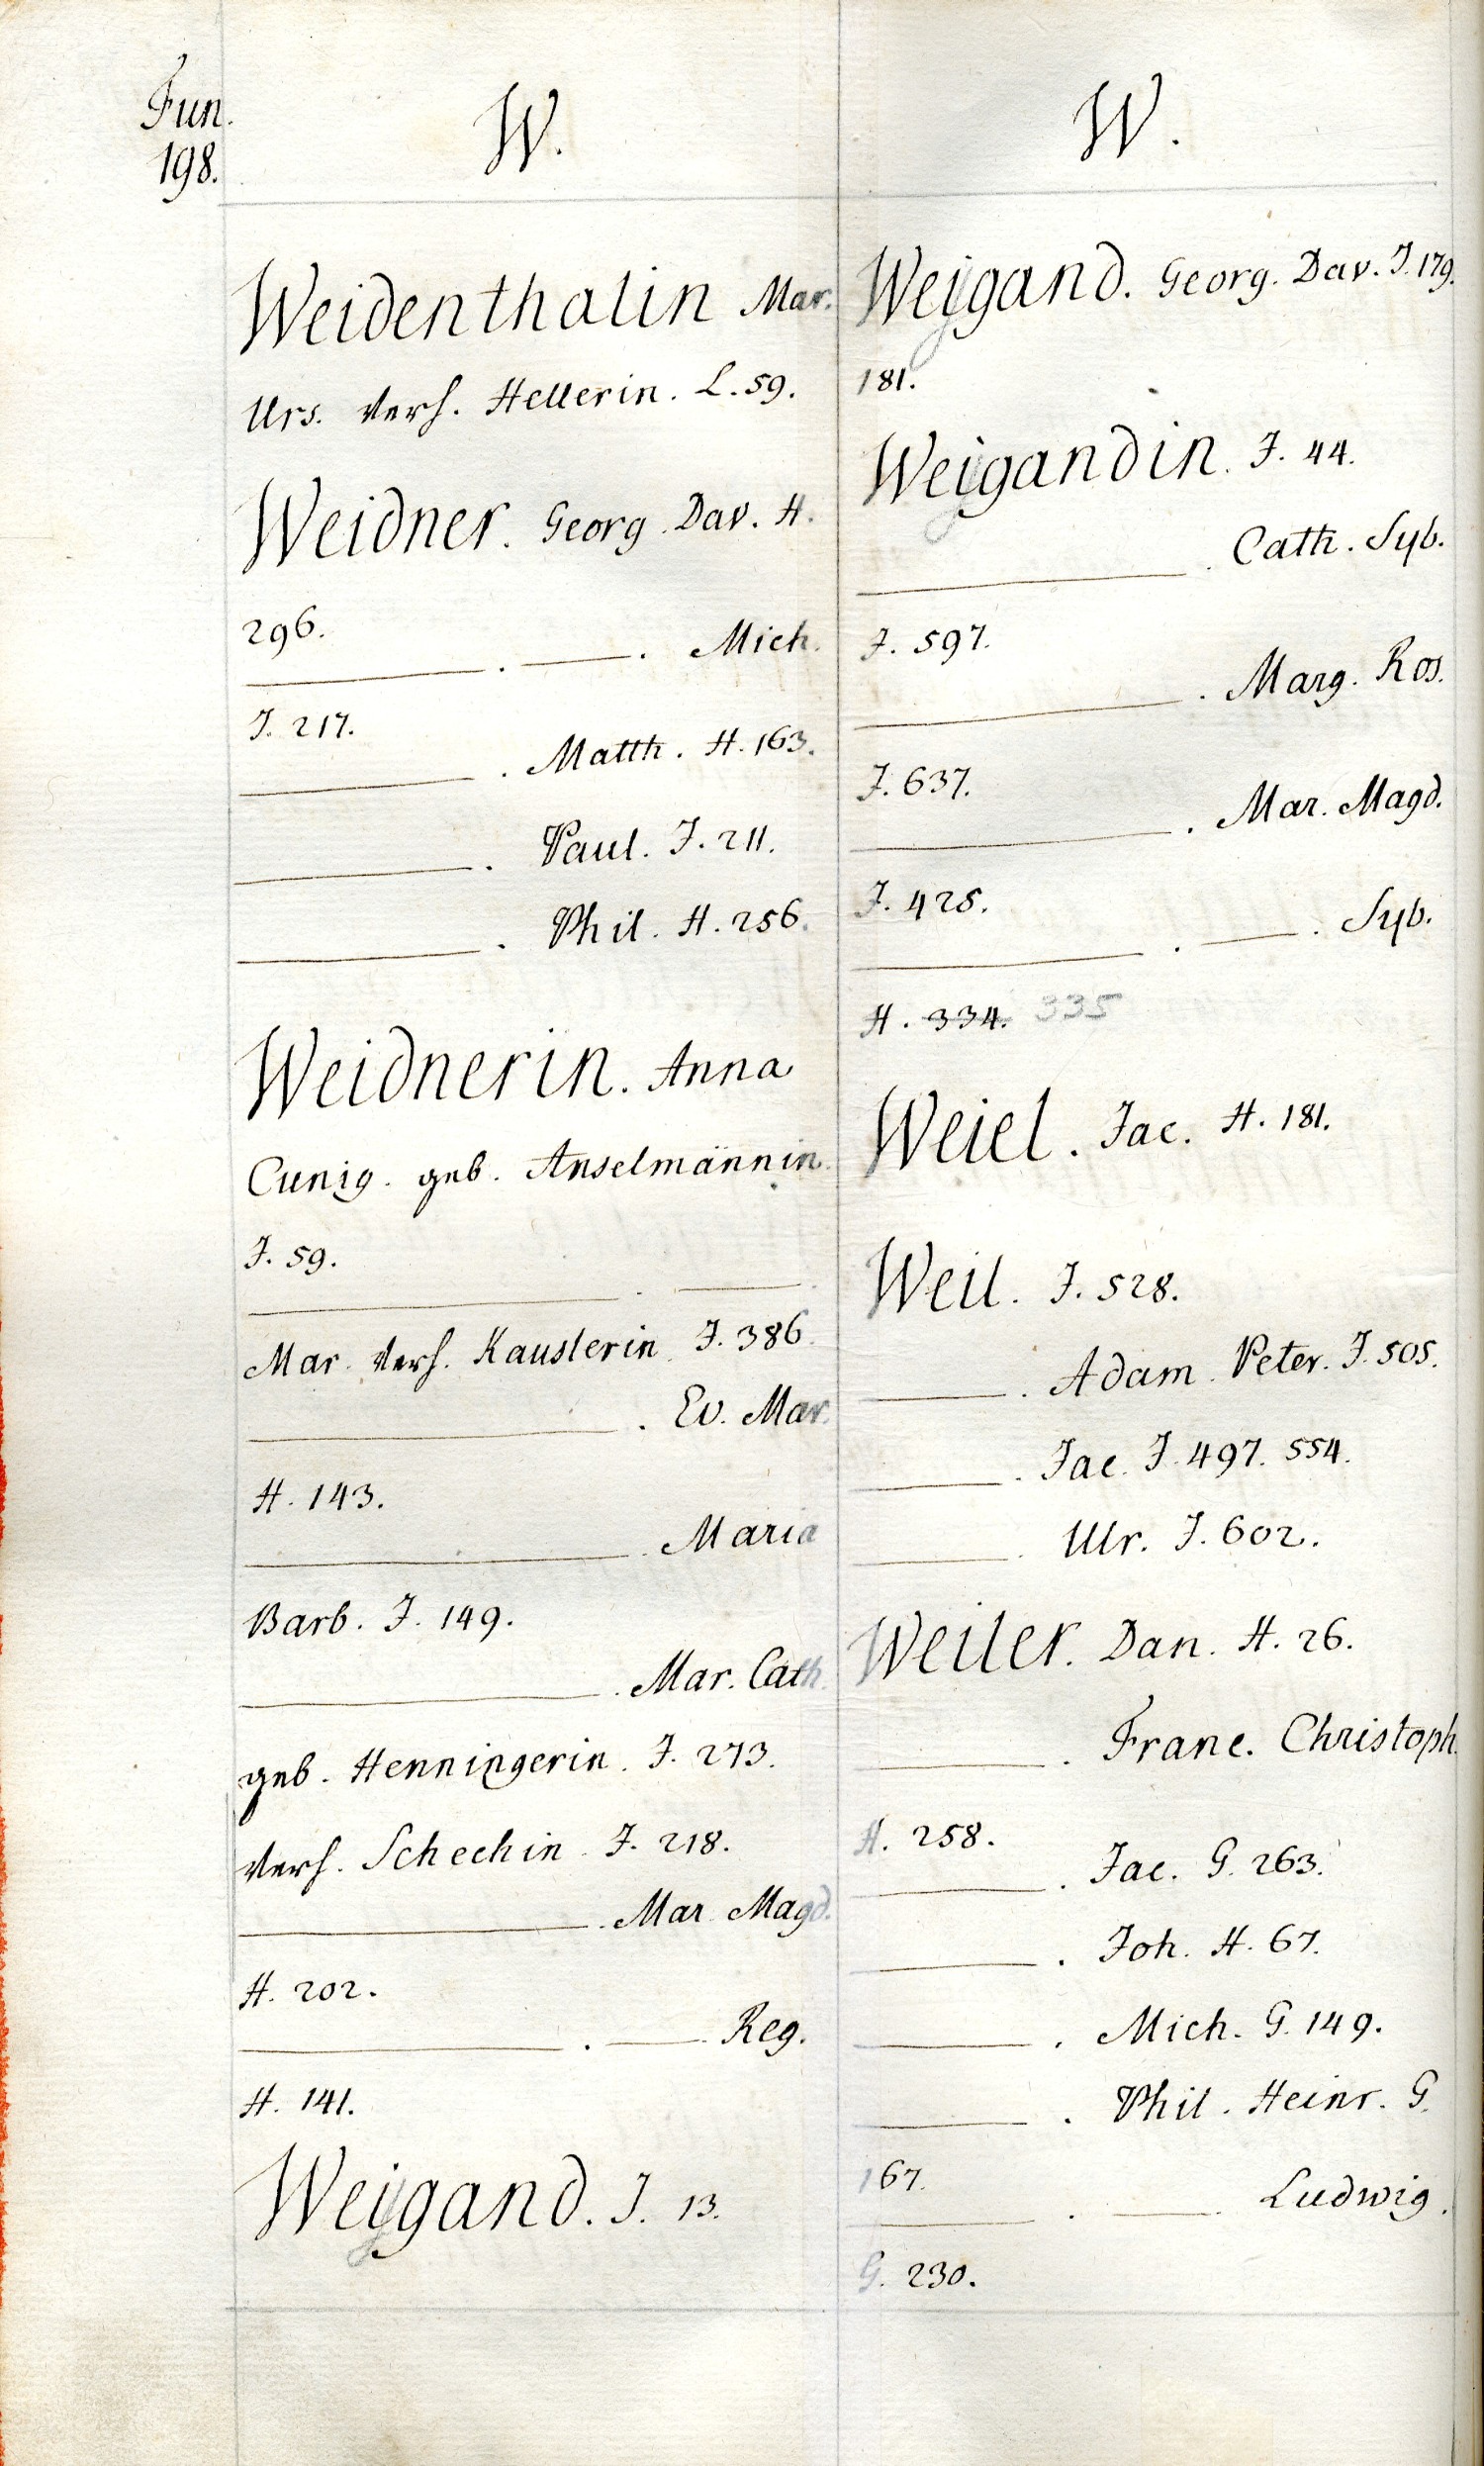 Fun.
198.
W.
Weidenthalin Mar.
Urs. verh. Hellerin. L. 59.
Weidner. Georg Dav. H.
296.
———. ———. Mich.
J. 217.
———. Matth. H. 163.
———. Paul. J. 211.
———. Phil. H. 256.
Weidnerin. Anna
Cunig. geb. Anselmännin.
J. 59.
———. ———.
Mar. verh. Kauslerin. J. 386.
———. Ev. Mar.
H. 143.
———. Maria
Barb. J. 149.
———. Mar. Cath.
geb. Henningerin. J. 273.
verh. Schechin. J. 218.
———. Mar. Magd.
H. 202.
———. ——— Reg.
H. 141.
Weigand. J. 13.
W.
Weigand. Georg. Dav. J. 179.
181.
Weigandin. J. 44.
———. Cath. Syb.
J. 597.
———. Marg. Ros.
J. 637.
———. Mar. Magd.
J. 425.
———. ———. Syb.
H. 334. 335
Weiel. Jac. H. 181.
Weil. J. 528.
———. Adam. Peter. J. 505.
———. Jac. J. 497. 554.
———. Ulr. J. 602.
Weiler. Dan. H. 26.
———. Franc. Christoph.
H. 258.
———. Jac. G. 263.
———. Joh. H. 67.
———. Mich. G. 149.
———. Phil. Heinr. G.
167.
———. ———. Ludwig.
G. 230.